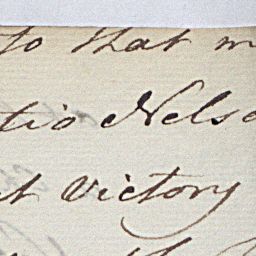 to that m
tio Nelso
t Victory